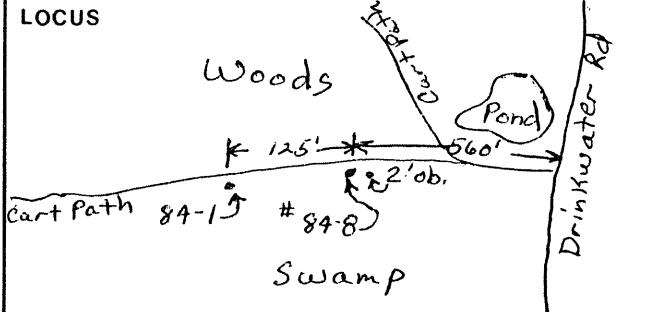 LOCUS
Cart Path
Woods
Pond
Drinkwater Rd
125'
560'
2' ob.
Cart Path
84-1
# 84-8
Swamp